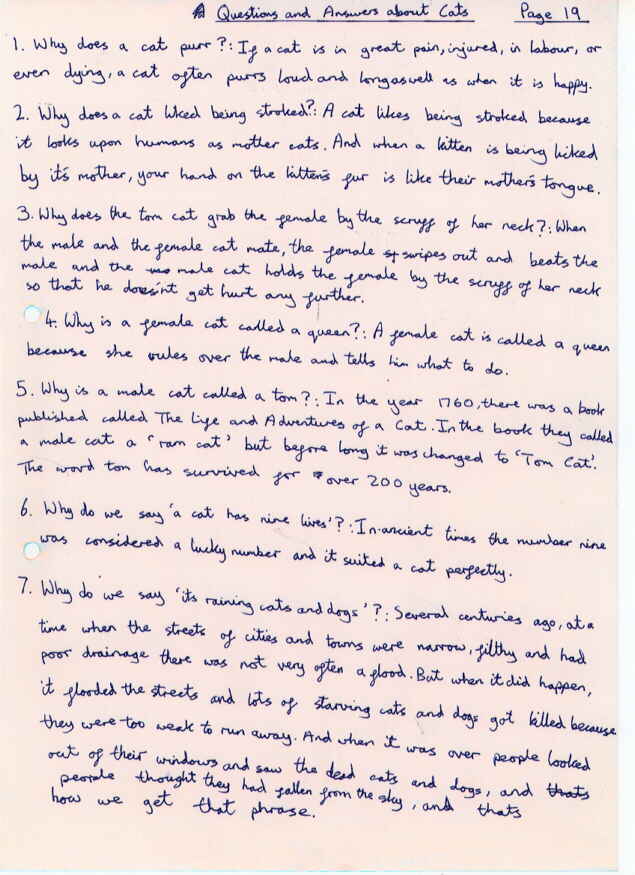 Questions and Answers about Cats Page 19
1. Why does a cat purr?: If a cat is in great pain, injured, in labour, or
even dying, a cat often purrs loud and long aswell as when it is happy.
2. Why does a cat liked being stroked?: A cat likes being stroked because
it looks upon humans as mother cats. And when a kitten is being licked
by it's mother, your hand on the kitten's fur is like their mother's tongue.
3. Why does the tom cat grab the female by the scruff of her neck?: When
the male and the female cat mate, the female swipes out and beats the
male and the male cat holds the female by the scruff of her neck
so that he does'nt get hurt any further.
4. Why is a female cat called a queen?: A female cat is called a queen
because she rules over the male and tells him what to do.
5. Why is a male cat called a tom?: In the year 1760, there was a book
published called The Life and Adventures of a Cat. In the book they called
a male cat a 'ram cat' but before long it was changed to 'Tom Cat'.
The word tom has survived for over 200 years.
6. Why do we say 'a cat has nine lives'?: In ancient times the number nine
was considered a lucky number and it suited a cat perfectly.
7. Why do we say 'its raining cats and dogs'?: Several centuries ago, at a
time when the streets of cities and towns were narrow, filthy and had
poor drainage there was not very often a flood. But when it did happen,
it flooded the streets and lots of starving cats and dogs got killed because
they were too weak to run away. And when it was over people looked
out of their windows and saw the dead cats and dogs, and thats
people thought they had fallen from the sky, and thats
how we get that phrase.